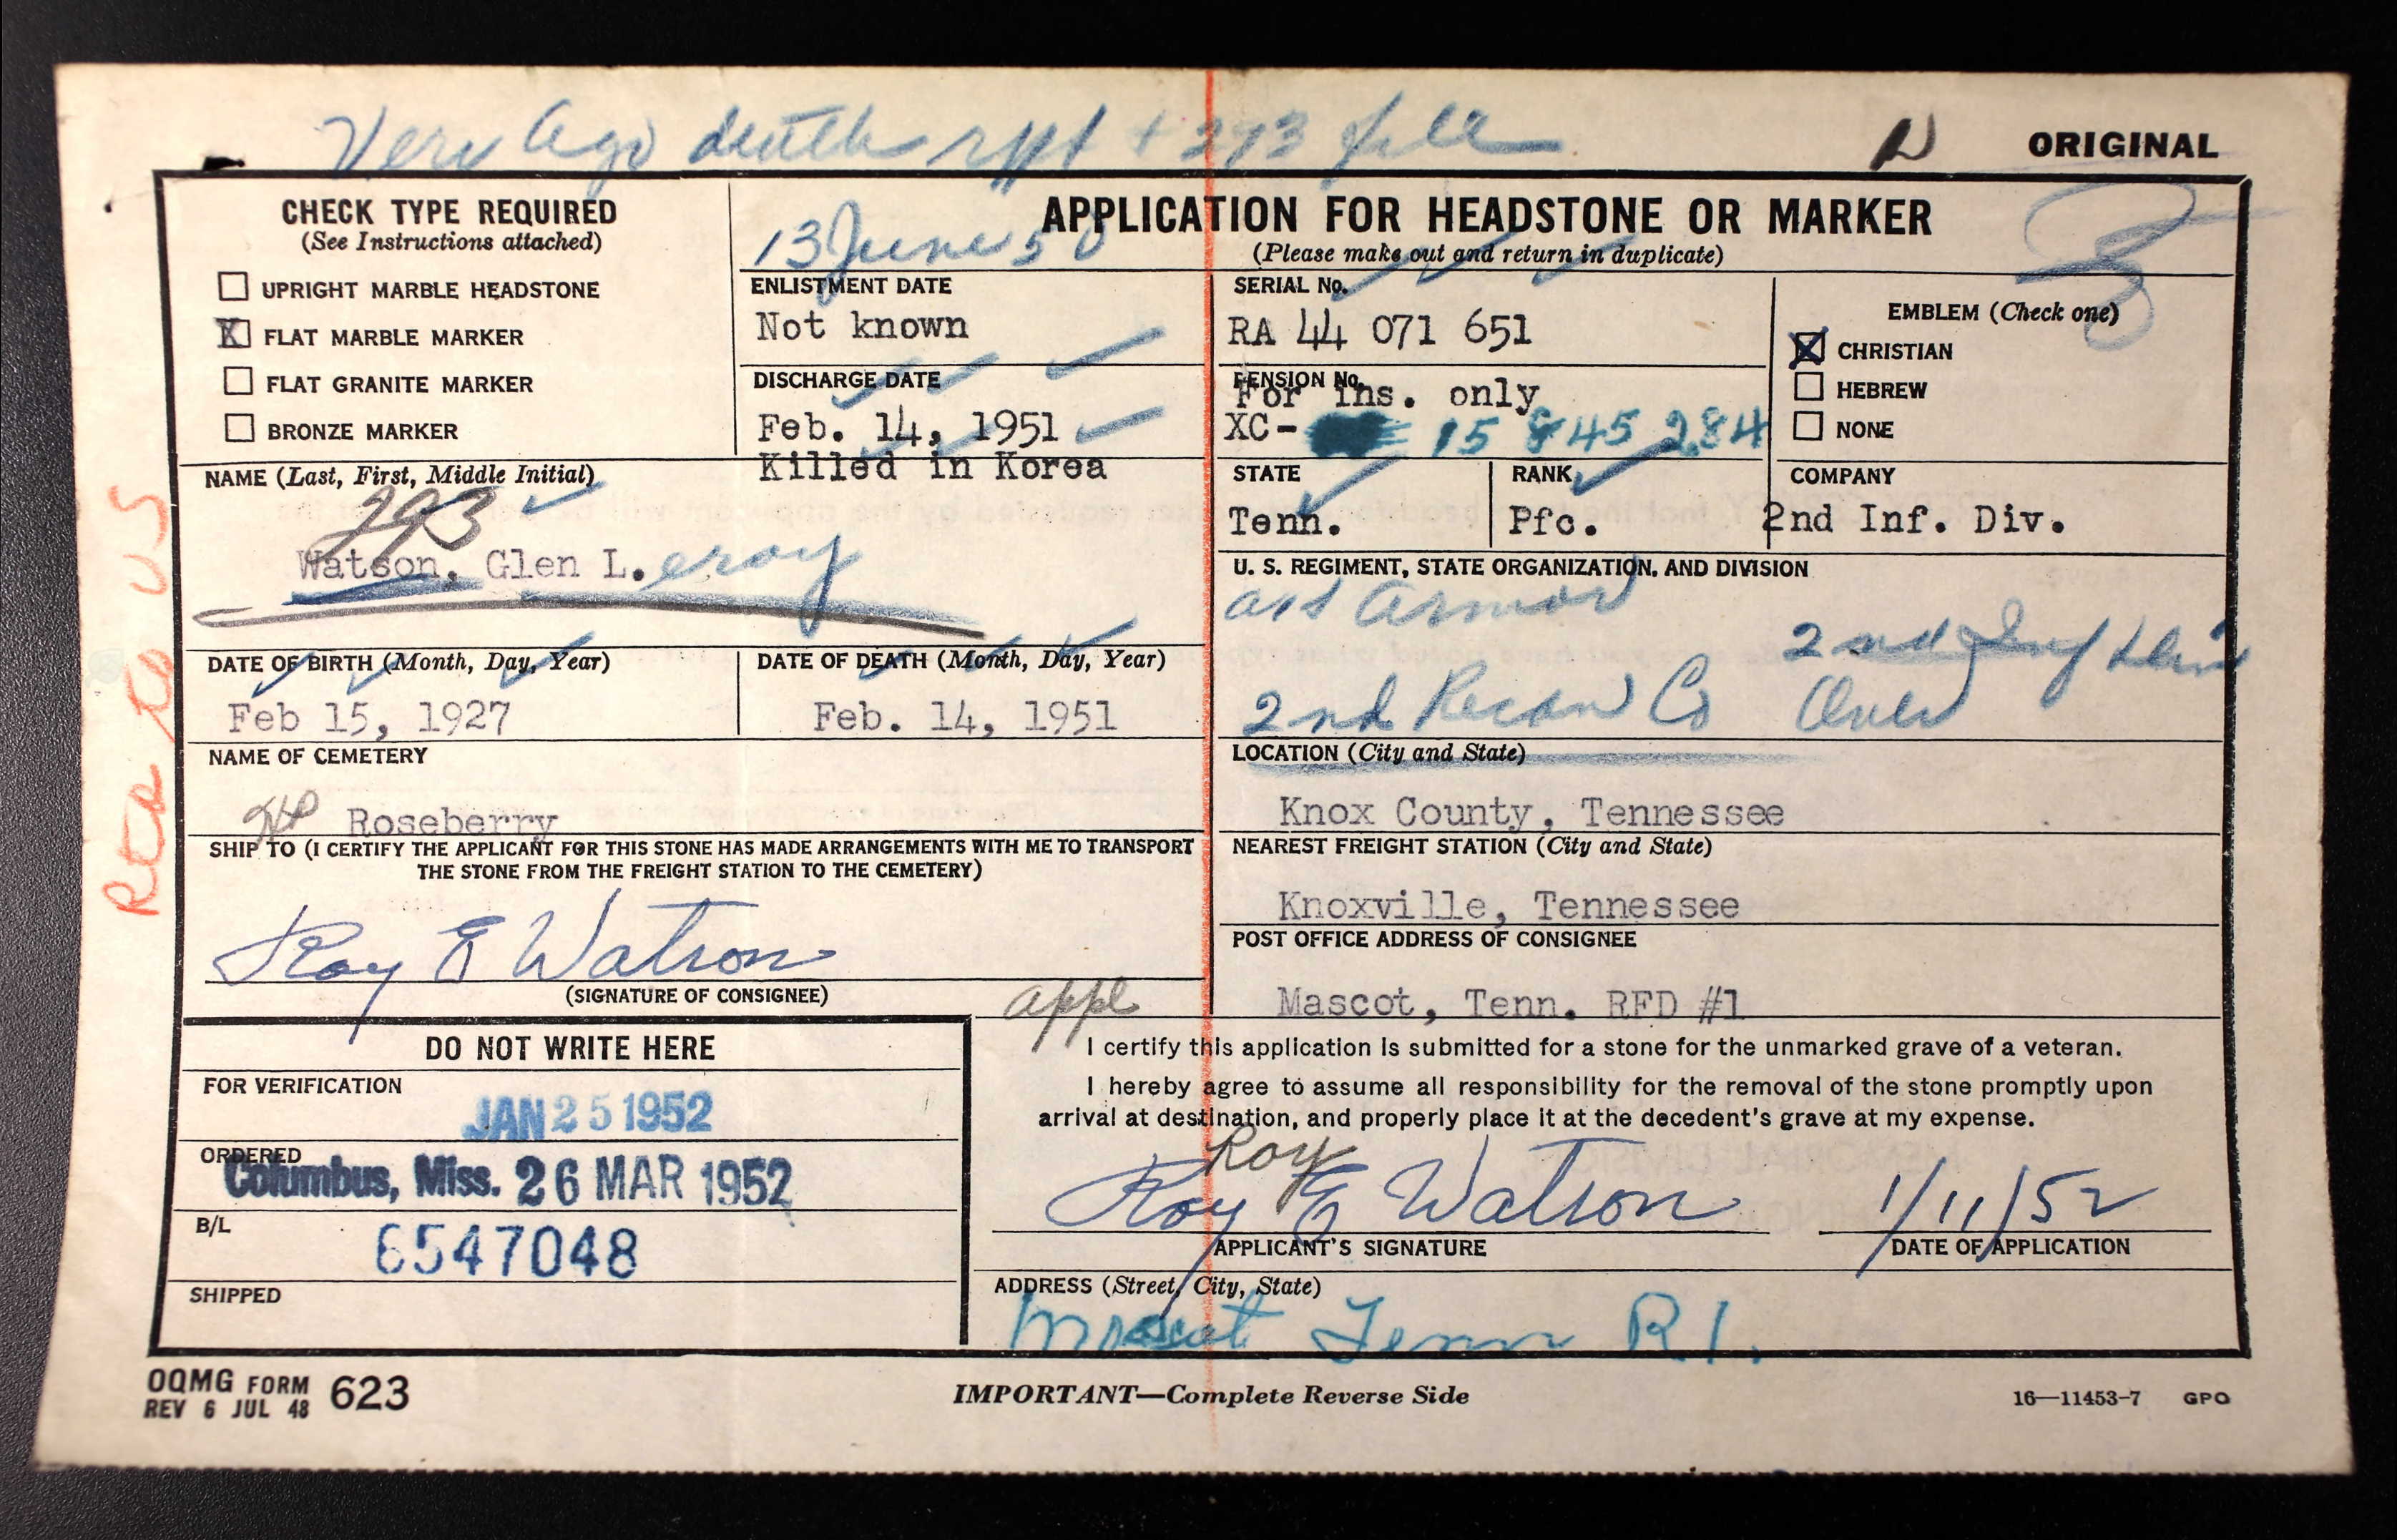 Veri Ago death rpt + 293 file
ORIGINAL
CHECK TYPE REQUIRED
(See Instructions attached)
UPRIGHT MARBLE HEADSTONE
X FLAT MARBLE MARKER
FLAT GRANITE MARKER
BRONZE MARKER
13 June 50
APPLICATION FOR HEADSTONE OR MARKER
(Please make out and return in duplicate)
ENLISTMENT DATE
Not known
DISCHARGE DATE
Feb. 14, 1951
Killed in Korea
SERIAL No.
RA 44 071 651
PENSION No.
For ins. only
XC- 15 845 284
EMBLEM (Check one)
X CHRISTIAN
HEBREW
NONE
NAME (Last, First, Middle Initial)
293
Watson, Glen L.eroy
STATE
Tenn.
RANK
Pfc.
COMPANY
2nd Inf. Div.
U. S. REGIMENT, STATE ORGANIZATION, AND DIVISION
Armor
2nd Inf Div
2nd Recon Co Over
DATE OF BIRTH (Month, Day, Year)
Feb 15, 1927
DATE OF DEATH (Month, Day, Year)
Feb. 14, 1951
NAME OF CEMETERY
Roseberry
LOCATION (City and State)
Knox County, Tennessee
SHIP TO (I CERTIFY THE APPLICANT FOR THIS STONE HAS MADE ARRANGEMENTS WITH ME TO TRANSPORT
THE STONE FROM THE FREIGHT STATION TO THE CEMETERY)
Roy E Watson
(SIGNATURE OF CONSIGNEE)
NEAREST FREIGHT STATION (City and State)
Knoxville, Tennessee
POST OFFICE ADDRESS OF CONSIGNEE
Mascot, Tenn. RFD #1
appl
DO NOT WRITE HERE
FOR VERIFICATION
JAN 25 1952
ORDERED
Columbus, Miss. 26 MAR 1952
B/L
6547048
SHIPPED
I certify this application is submitted for a stone for the unmarked grave of a veteran.
I hereby agree to assume all responsibility for the removal of the stone promptly upon
arrival at destination, and properly place it at the decedent's grave at my expense.
Roy
Roy E Watson
1/11/52
APPLICANT'S SIGNATURE
DATE OF APPLICATION
ADDRESS (Street, City, State)
Mascot Tenn R 1.
OQMG FORM 623
REV 6 JUL 48
IMPORTANT—Complete Reverse Side
16—11453-7 GPO